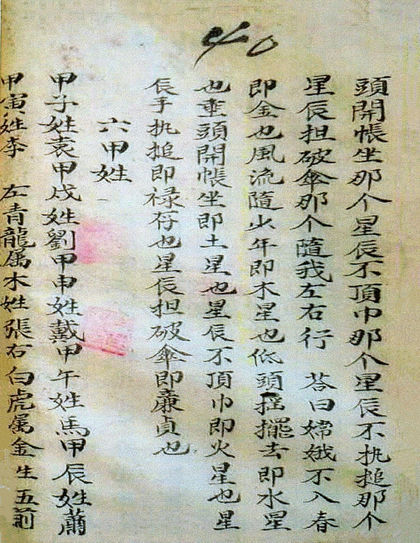 40
頭開帳坐那个星辰不頂巾那个星辰不执搥那个
星辰担破傘那个隨我左右行 答曰嫦娥不入春
即金也風流隨少年即木星也低頭搖擺去即水星
也垂頭開帳坐即土星也星辰不頂巾即火星也星
辰手执搥即禄存也星辰担破傘即廉貞也
六甲姓
甲子姓袁甲戌姓劉甲申姓戴甲午姓馬甲辰姓蕭
甲寅姓李 左青龍属木姓張右白虎属金生五前